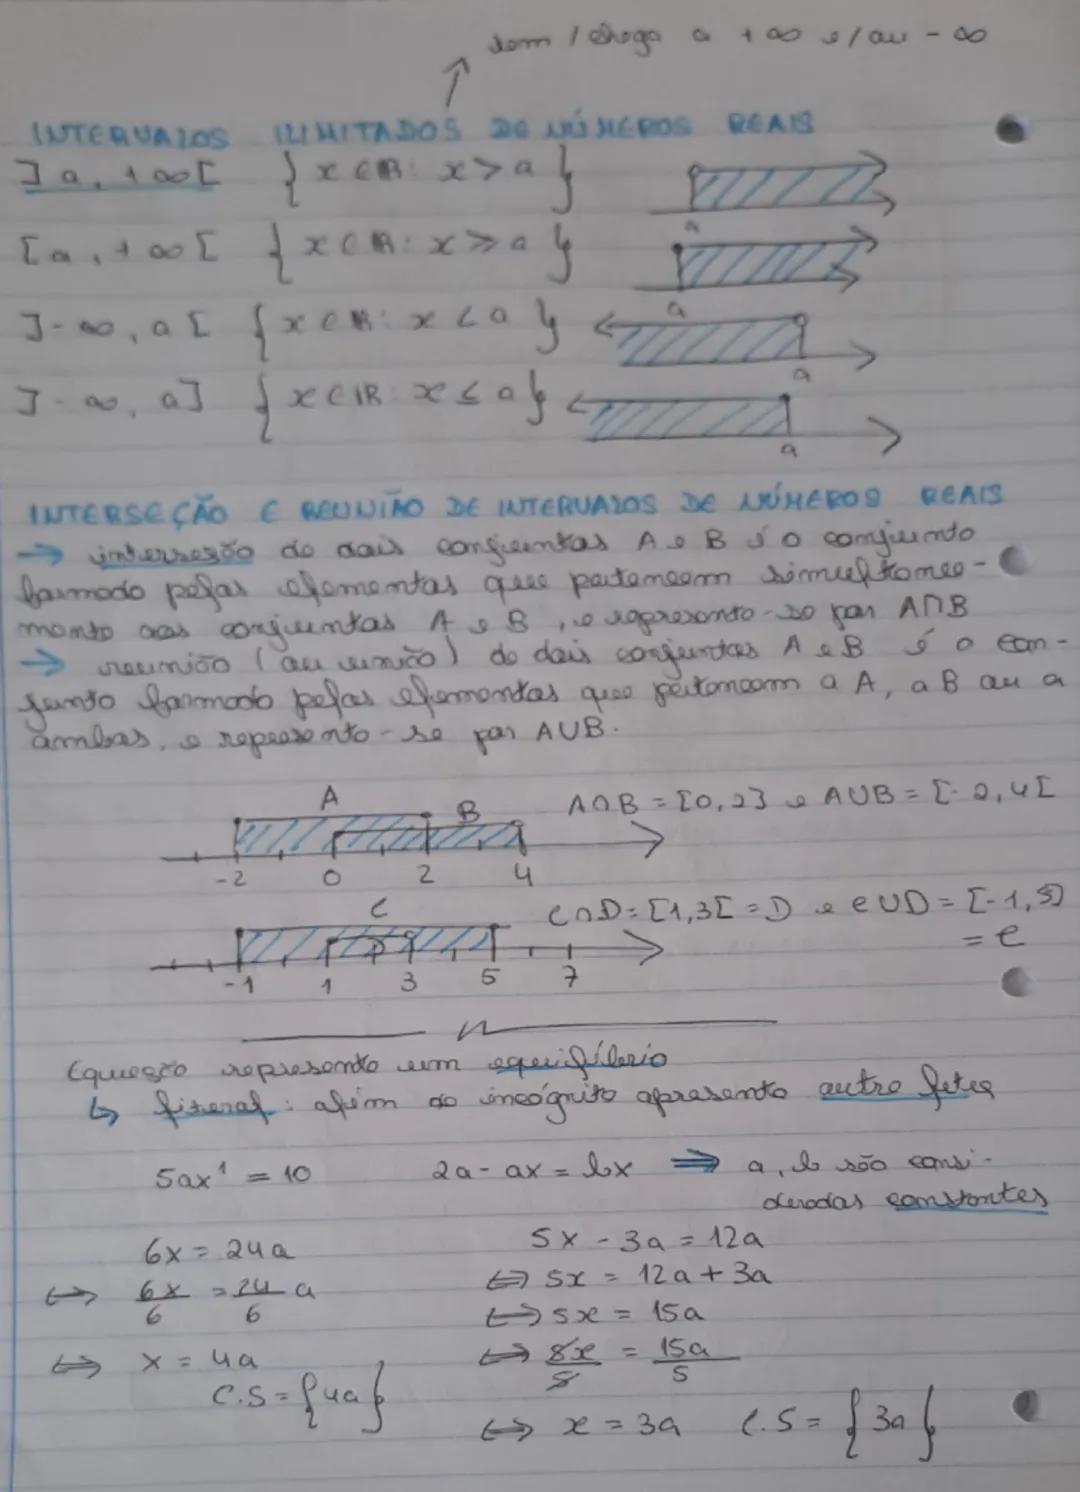 tem / chega a +∞ e/ou -∞
INTERVALOS ILIMITADOS DE NÚMEROS REAIS
]a, +∞[ {x∈ℝ: x>a}
a
[a, +∞[ {x∈ℝ: x⩾a}
a
]-∞, a[ {x∈ℝ: x<a}
a
]-∞, a] {x∈ℝ: x≤a}
a
INTERSEÇÃO E REUNIÃO DE INTERVALOS DE NÚMEROS REAIS
→ interseção de dois conjuntos A e B é o conjunto
formado pelos elementos que pertencem simultanea-
mente aos conjuntos A e B, e representa-se por A∩B
→ reunião (ou união) de dois conjuntos A e B é o con-
junto formado pelos elementos que pertencem a A, a B ou a
ambos, e representa-se por A∪B.
A B A∩B = [0,2] e A∪B = [-2,4[
-2 0 2 4
C D C∩D = [1,3[ = D e C∪D = [-1,5]
= C
-1 1 3 5 7
Equação representa um equilíbrio
↳ literal: além da incógnita apresenta outra letra
5ax¹ = 10 2a - ax = bx ⇒ a, b são consi-
deradas constantes
6x = 24a 5x - 3a = 12a
⇔ 6x/6 = 24/6 a ⇔ 5x = 12a + 3a
⇔ 5x = 15a
⇔ x = 4a ⇔ 5x/5 = 15a/5
C.S = {4a}
⇔ x = 3a C.S = {3a}